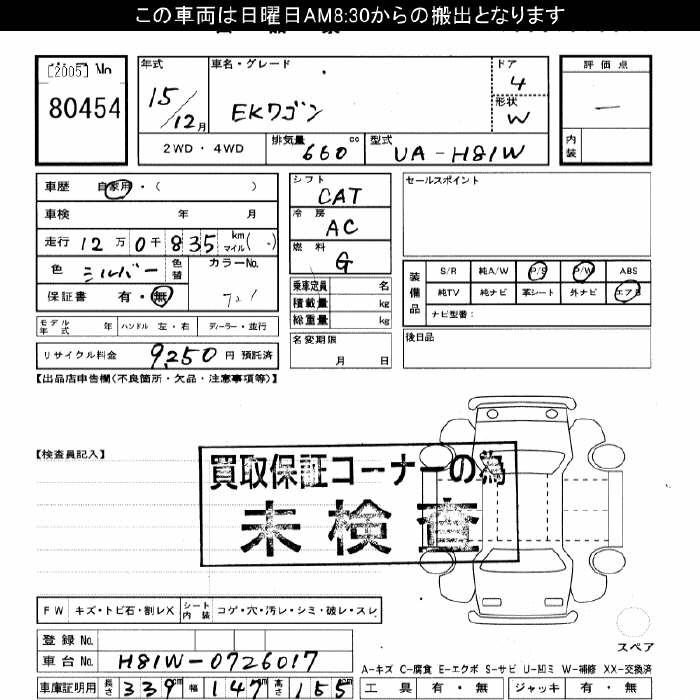 この車両は日曜日AM8:30からの搬出となります
[2005] No
80454
年式
15/12月
車名・グレード
EKワゴン
ドア
4
形状
W
評価点
内装
2WD・4WD
排気量 660 cc
型式 UA-H81W
車歴 自家用・( )
車検 年 月
走行 12万0千835 km マイル( )
色 シルバー 色替
カラーNo.
保証書 有・無
シフト CAT
冷房 AC
燃料 G
乗車定員 名
積載量 kg
総重量 kg
名変期限
月 日
セールスポイント
装備品
S/R 純A/W P/S P/W ABS
純TV 純ナビ 革シート 外ナビ エアB
ナビ型番:
後日品
モデル年式 年 ハンドル 左・右 ディーラー・並行
リサイクル料金 9,250 円 預託済
【出品店申告欄(不良箇所・欠品・注意事項等)】
【検査員記入】
買取保証コーナーの為
未検査
FW キズ・トビ石・割レX シート内装 コゲ・穴・汚レ・シミ・破レ・スレ
スペア
登録No.
車台No. H81W-0726017
A-キズ C-腐食 E-エクボ S-サビ U-凹ミ W-補修 XX-交換済
車庫証明用 長さ 339 cm 幅 147 cm 高さ 155 cm
工具 有・無 ジャッキ 有・無